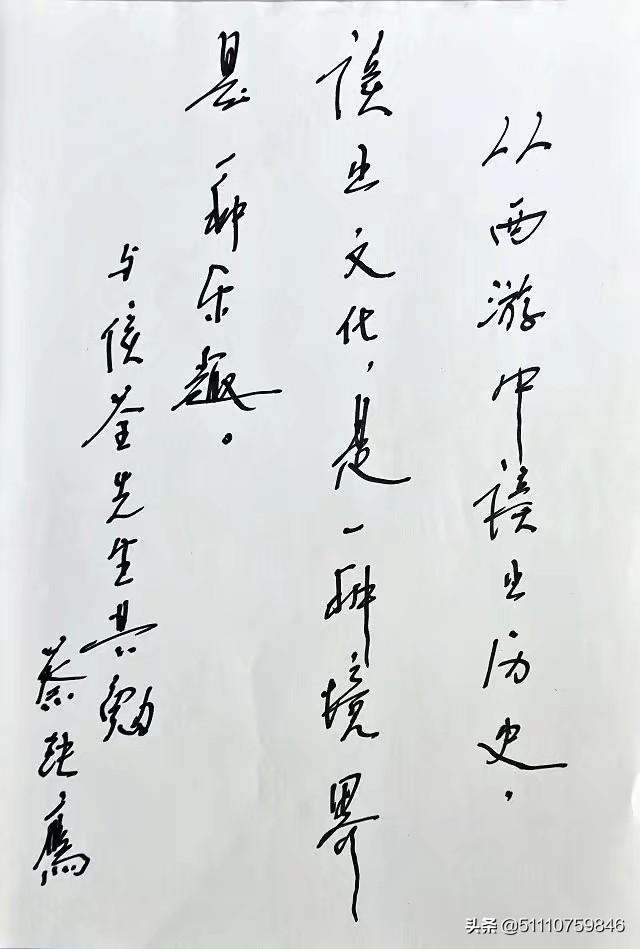 从西游中读出历史，
读出文化，是一种境界
一种乐趣。
与侯荃先生共勉
蔡铁鹰
头条 @51110759846